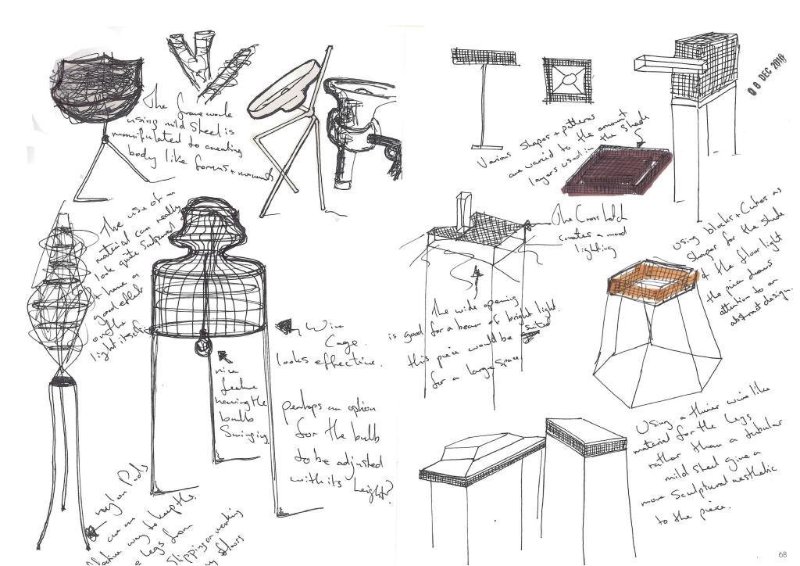 The framework
using mild steel is
manipulated to creating
body like forms + mounts
The use of a
material can really
look quite sculptural
+ have a
good effect
on the
light itself
Wire
Cage
looks effective.
nice
feature
having the
bulb
Swinging
perhaps an option
for the bulb
to be adjusted
with its height?
nylon Pads
can
way to keep the
legs from
Slipping or
floors
00 DEC 2018
Various shapes + patterns
are varied to the amount
layers used in the shade
The Cross hatch
creates a mood
lighting
The wide opening
is good for a beam of bright light.
this piece would be suited
for a large space.
Using blocks + Cubes as
shapes for the shade
of the floor light
the piece draws
attention to an
abstract design.
Using a thinner wire like
material for the legs
rather than a tubular
mild steel give a
more Sculptural aesthetic
to the piece.
08